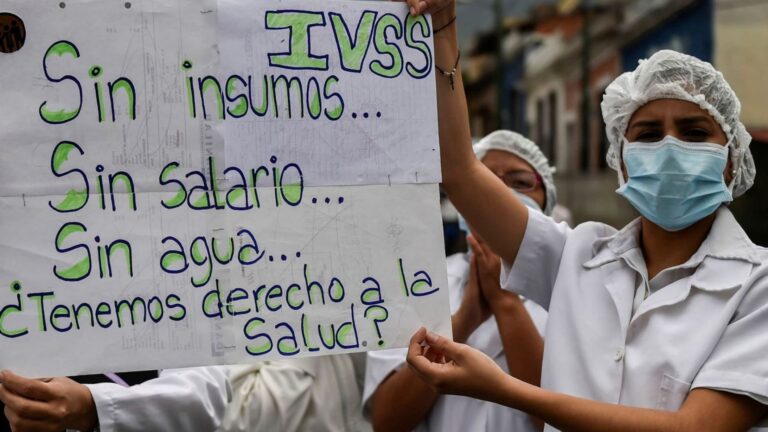 IVSS
Sin insumos...
Sin salario...
Sin agua...
¿Tenemos derecho a la
Salud?